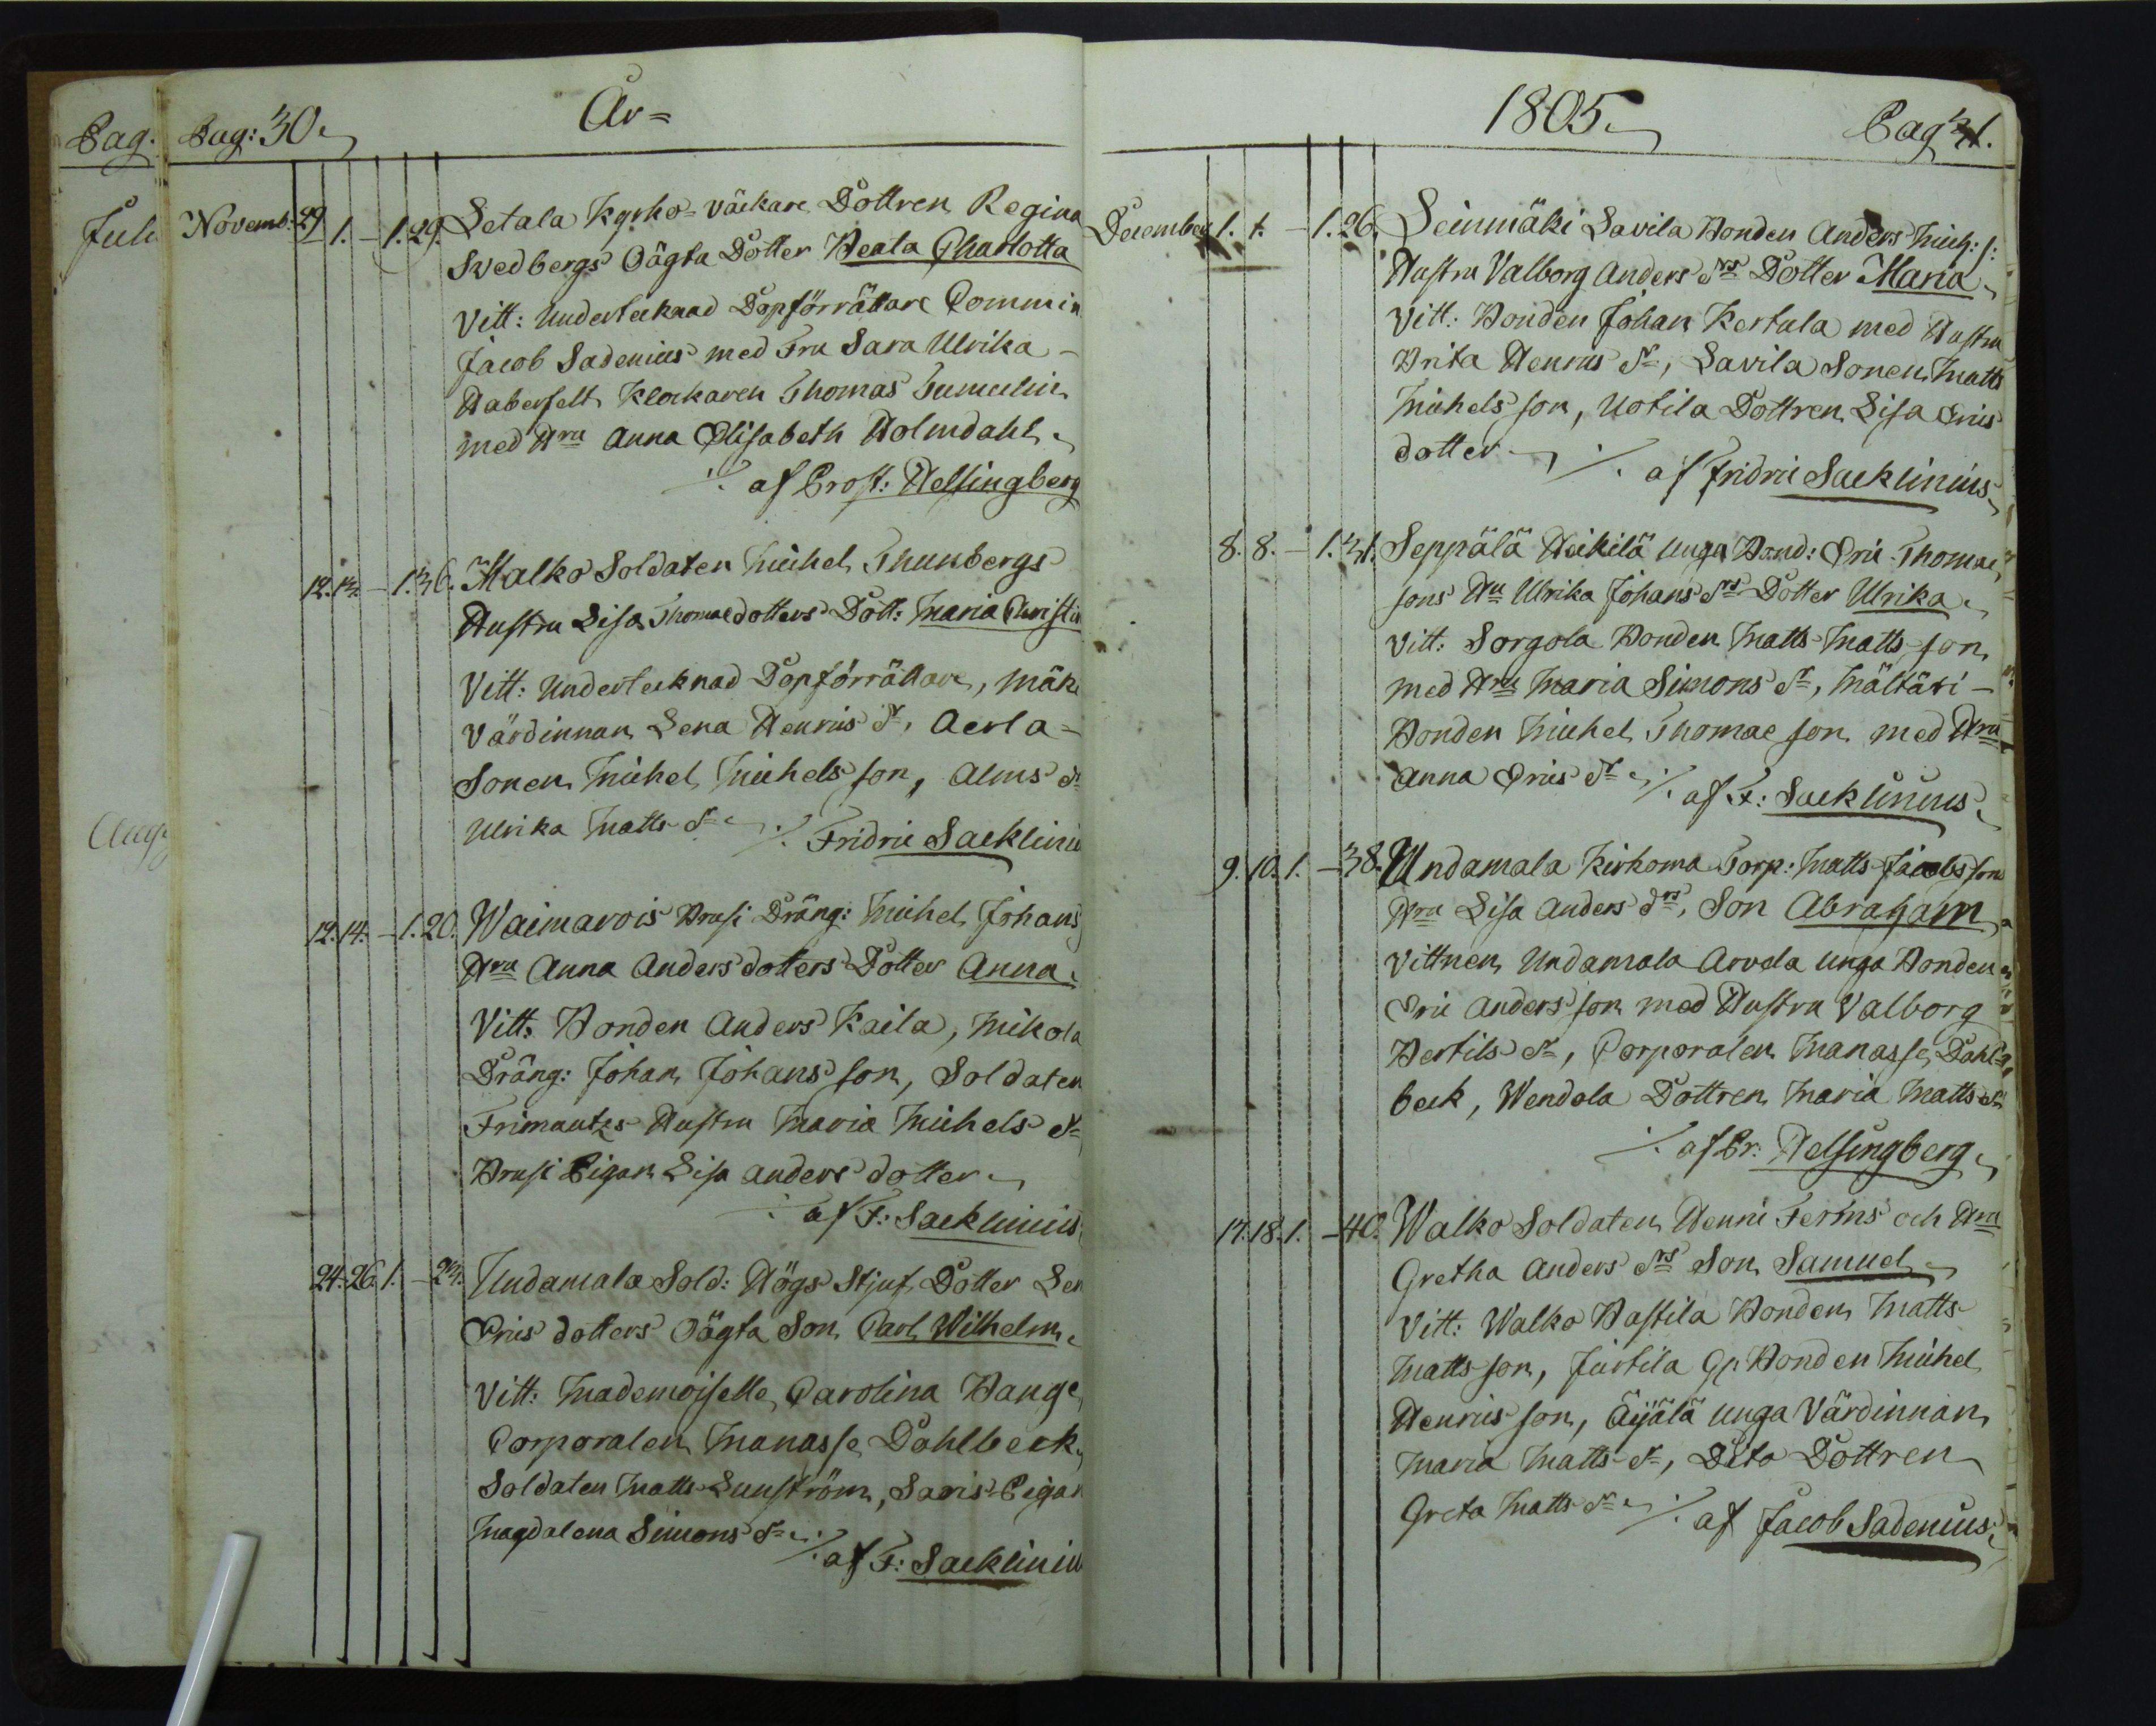 Pag.
Juli
Aug
Pag: 30.
År=
Novemb: 29 1. – 1. 29. Setala Kyrko-väckare Dottren Regina
Svedbergs Oägta Dotter Beata Charlotta
Vitt: Underteknad Dopförrättare Commin
Jacob Sadenius med Fru Sara Ulrika –
Haberfelt Klockaren Thomas Tumelin
med Hru Anna Elisabeth Holmdahl.
./. af Prost: Helsingberg
12. 13. – 1. 36. Malko Soldaten Michel Thunbergs
Hustru Lisa Thomaedotters Dott: Maria Christin
Vitt: Underteknad Dopförrättare, Mäki
Värdinnan Lena Henrics dr, Aerla=
Sonen Michel Michels son, Alms dr
Ulrika Matts dr ./. Fridric Sacklinius
12. 14. – 1. 20. Waimarois Brusi Dräng: Michel Johans
Hru Anna Andersdotters Dotter Anna.
Vitt: Bonden Anders Kaila, Mikola
Dräng: Johan Johans son, Soldaten
Frimantes Hustru Maria Michels dr
Brusi Pigan Lisa Anders dotter.
./. af F: Sacklinius
24. 26. 1. – 23. Undamala Sold: Högs Stjuf Dotter Len
Erics dotters Oägta Son Carl Wilhelm.
Vitt: Mademoiselle Carolina Bange
Corporalen Manasse Dahlbeck,
Soldaten Matts Lunström, Saris Pigan
Magdalena Simons dr ./. af F: Sacklinius
1805.
Pag 31.
December 1. 1. – 1. 26. Seinmäki Savila Bonden Anders Mich: s:
Hustru Valborg Anders drs Dotter Maria.
Vitt: Bonden Johan Kertula med Hustru
Brita Henrics dr, Savila Sonen Matts
Michels son, Uotila Dottren Lisa Erics
dotter ./. af Fridric Sacklinius.
8. 8. – 1. 31. Seppälä Heikilä unga Bond: Eric Thomae
sons Hu Ulrika Johans drs Dotter Ulrika.
Vitt: Sorgola Bonden Matts Matts son
med Hru Maria Simons dr, Mältäri –
Bonden Michel Thomae son med Hru
Anna Erics dr ./. af F: Sacklinius.
9. 10. 1. – 38. Undamala Kirkoma Torp: Matts Jacobs sons
Hru Lisa Anders drs, Son Abraham
Vittnen Undamala Arvela unga Bonden
Eric Anders son med Hustru Valborg
Bertils dr, Corporalen Manasse Dahl=
beck, Wendela Dottren Maria Matts dr
./. af Pr: Helsingberg.
17. 18. 1. – 40. Walko Soldaten Henric Ferms och Hru
Gretha Anders drs Son Samuel.
Vitt: Walko Hastila Bonden Matts
Matts son, Juvtila Gl. Bonden Michel
Henrics son, Äijälä unga Värdinnan
Maria Matts dr, Dito Dottren
Greta Matts dr ./. af Jacob Sadenius.